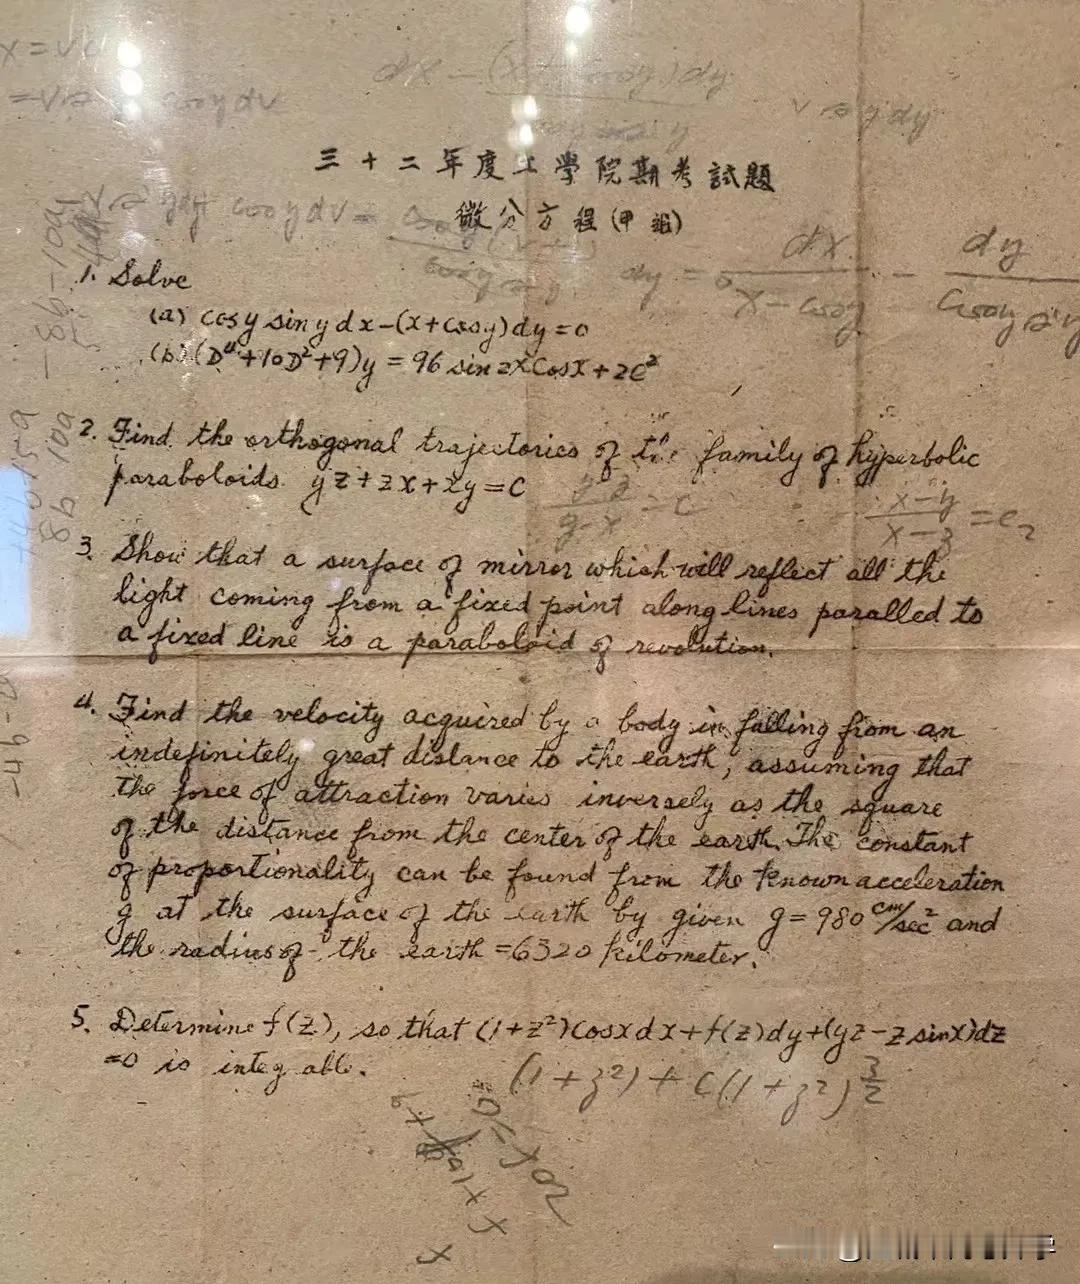 三十二年度工學院期考試題
微分方程(甲組)
1. Solve
(a) cosy siny dx-(x+cosy)dy=0
(b) (D⁴+10D²+9)y = 96 sin2xCosx+2e²
2. Find the orthogonal trajectories of the family of hyperbolic
paraboloids. yz+zx+xy=C
x-y/x-z =c₂
3. Show that a surface of mirror which will reflect all the
light coming from a fixed point along lines paralled to
a fixed line is a paraboloid of revolution.
4. Find the velocity acquired by a body in falling from an
indefinitely great distance to the earth, assuming that
the force of attraction varies inversely as the square
of the distance from the center of the earth. The constant
of proportionality can be found from the known acceleration
g at the surface of the earth by given g=980 cm/sec² and
the radius of the earth =6320 kilometer.
5. Determine f(z), so that (1+z²)Cosxdx+f(z)dy+(yz-z sinx)dz
=0 is integ able.
(1+z²)+C(1+z²)^3/2